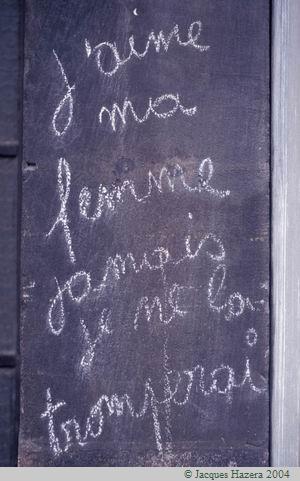 j'aime
ma
femme.
jamais
je ne la
tromperai
© Jacques Hazera 2004